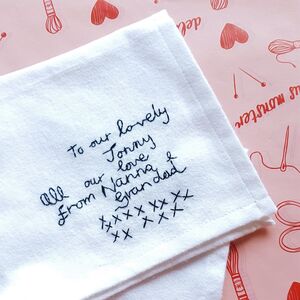 To our lovely
Jonny
All our love
From Nanna &
Grandad
xxxx xx xx
xx xxx
deli
us monster